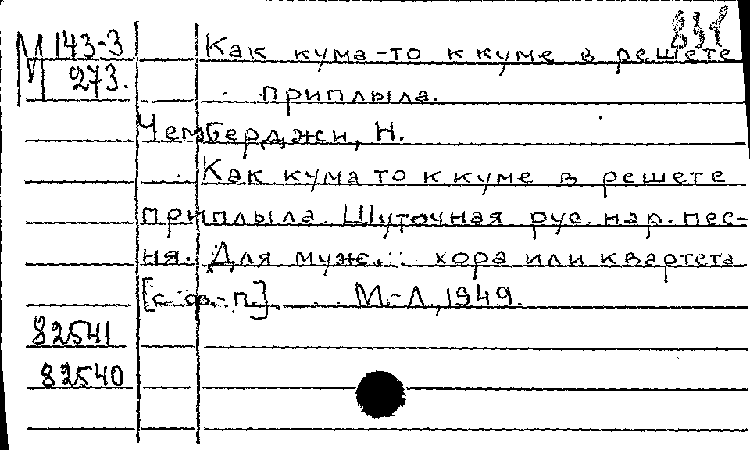 831
М 143-3 Как кума-то к куме в решете
273. приплыла.
Чемберджи, Н.
Как кума то к куме в решете
приплыла. Шуточная рус. нар. пес-
ня. Для муж. хора или квартета
[с ф.-п.] М.-Л, 1949.
82541
82540